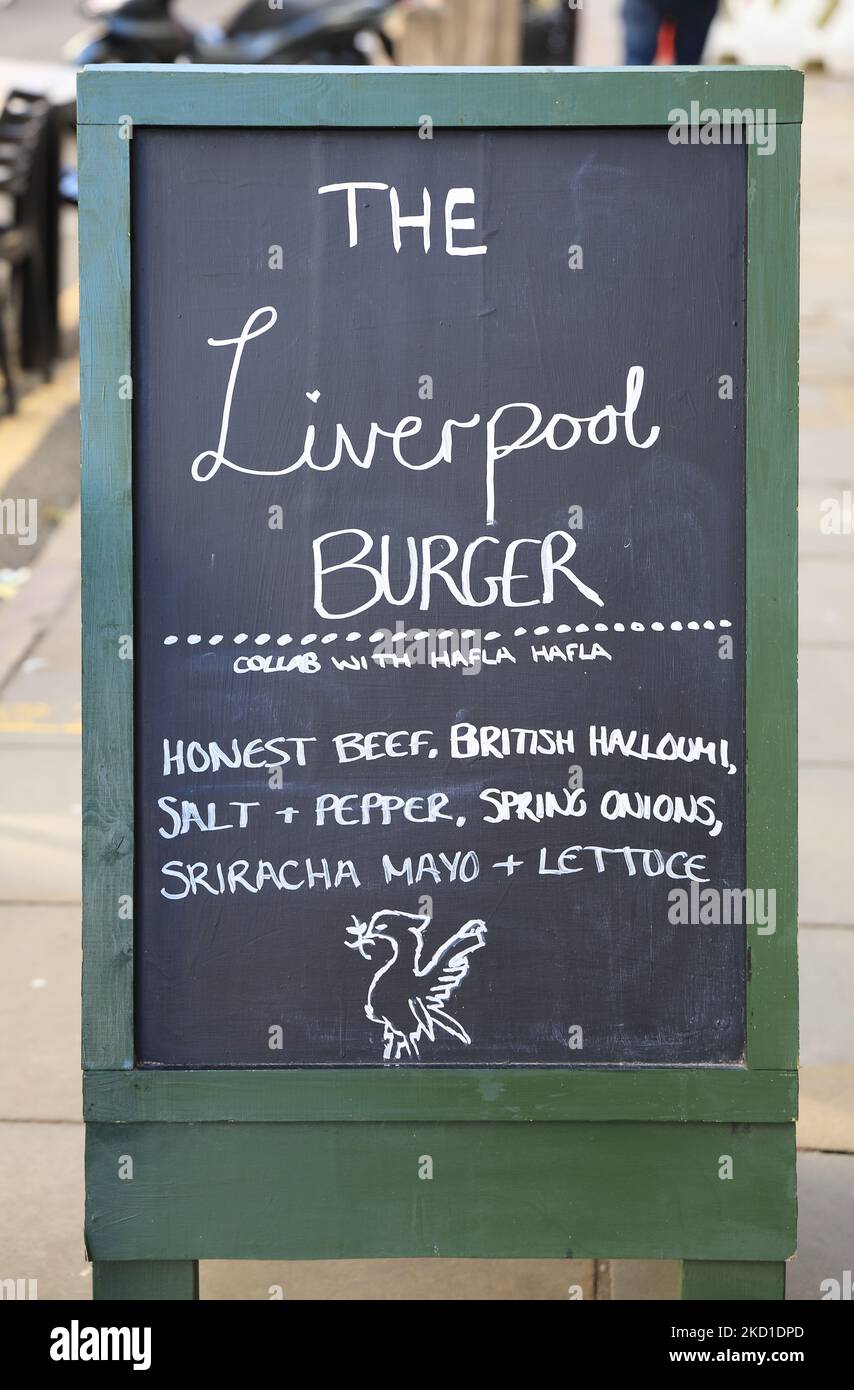 THE
Liverpool
BURGER
COLLAB WITH HAFLA HAFLA
HONEST BEEF, BRITISH HALLOUMI,
SALT + PEPPER, SPRING ONIONS,
SRIRACHA MAYO + LETTUCE
alamy
Image ID: 2KD1DPD
www.alamy.com